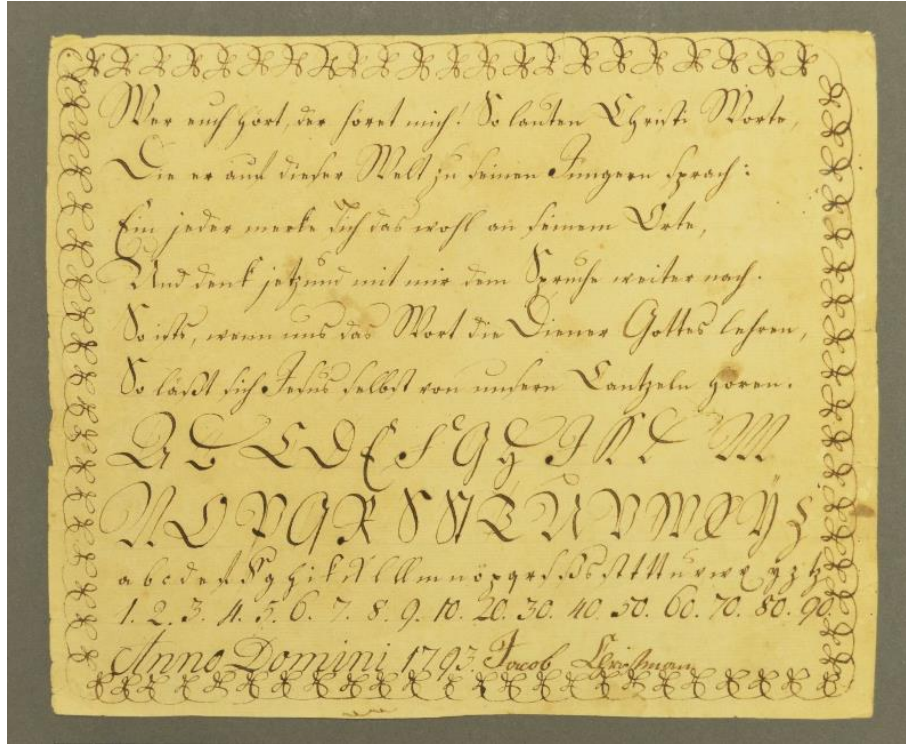 Wer euch hort, der horet mich! So lauten Christi Worte,
Die er auf dieser Welt zu seinen Jüngern sprach:
Ein jeder merke sich das wohl an seinem Orte,
Und denk jetzund mit mir dem Spruche weiter nach.
So ists, wenn uns das Wort die Diener Gottes lehren,
So läßt sich Jesus selbst von unsern Cantzeln horen.
A B C D E F G H I K L M
N O P Q R S St T U V W X Y Z
a b c d e f ff g h i k l ll m n o p q r s ß s st t tt u v w x y z tz
1. 2. 3. 4. 5. 6. 7. 8. 9. 10. 20. 30. 40. 50. 60. 70. 80. 90.
Anno Domini 1793. Jacob Christman